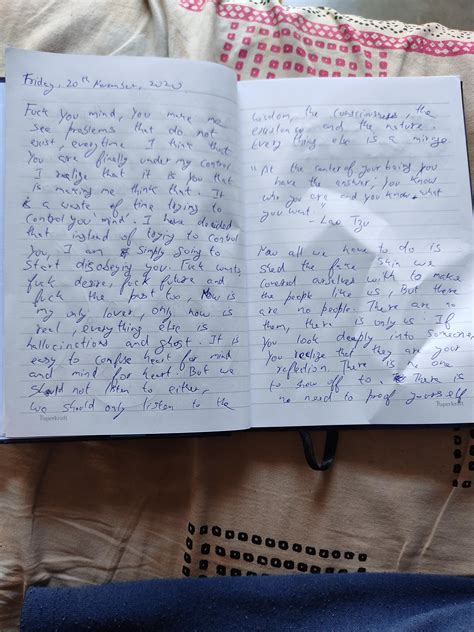 Friday, 20th November, 2020
Fuck you mind, you make me
see problems that do not
exist, everytime I think that
you are finally under my control
I realize that it is you that
is making me think that. It
is a waste of time trying to
control you mind. I have decided
that instead of trying to control
you, I am simply going to
start disobeying you. Fuck wants,
fuck desire, fuck future and
fuck the past too, Now is
my only lover, only now is
real, everything else is
hallucinations and ghost. It is
easy to confuse heart for mind
and mind for heart. But we
should not listen to either,
we should only listen to the
Paperkraft
wisdom, the consciousness, the
existence and the nature.
Every thing else is a mirage.
"At the center of your being you
have the answer, you know
who you are and you know what
you want."
- Lao Tzu
Now all we have to do is
shed the fake skin we
covered ourselves with to make
the people like us, But there
are no people. There are no
them, there is only us. If
you look deeply into someone,
you realize that they are your
reflection. There is no one
to show off to. There is
no need to proof yourself
Paperkraft